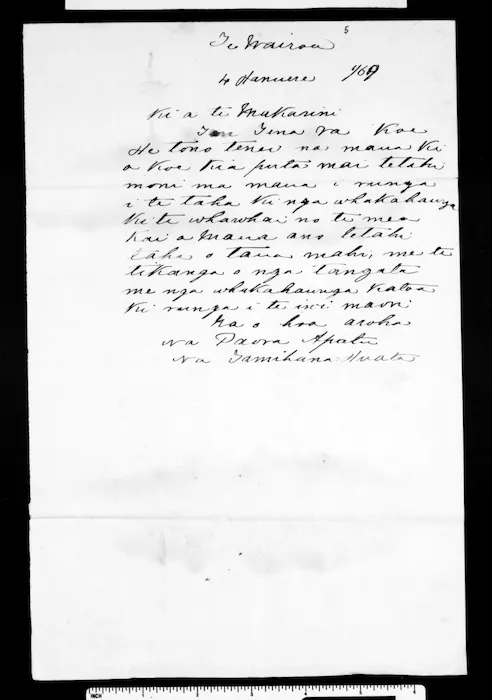 5
Te Wairoa
4 Hanuere /69
Ki a te Makarini
Tena ra Koe
He tono tenei na maua ki
a koe kia puta mai tetahi
moni ma maua i runga
i te taha ki nga whakahaunga
ki te whawhai no te mea
kai a Maua ano tetahi
taha o taua mahi, me te
tikanga o nga tangata
me nga whakahaunga katoa
ki runga i te iwi maori
Na o hoa aroha
Na Paora Apatu
Na Tamihana Huata
INCH 1 2 3 4